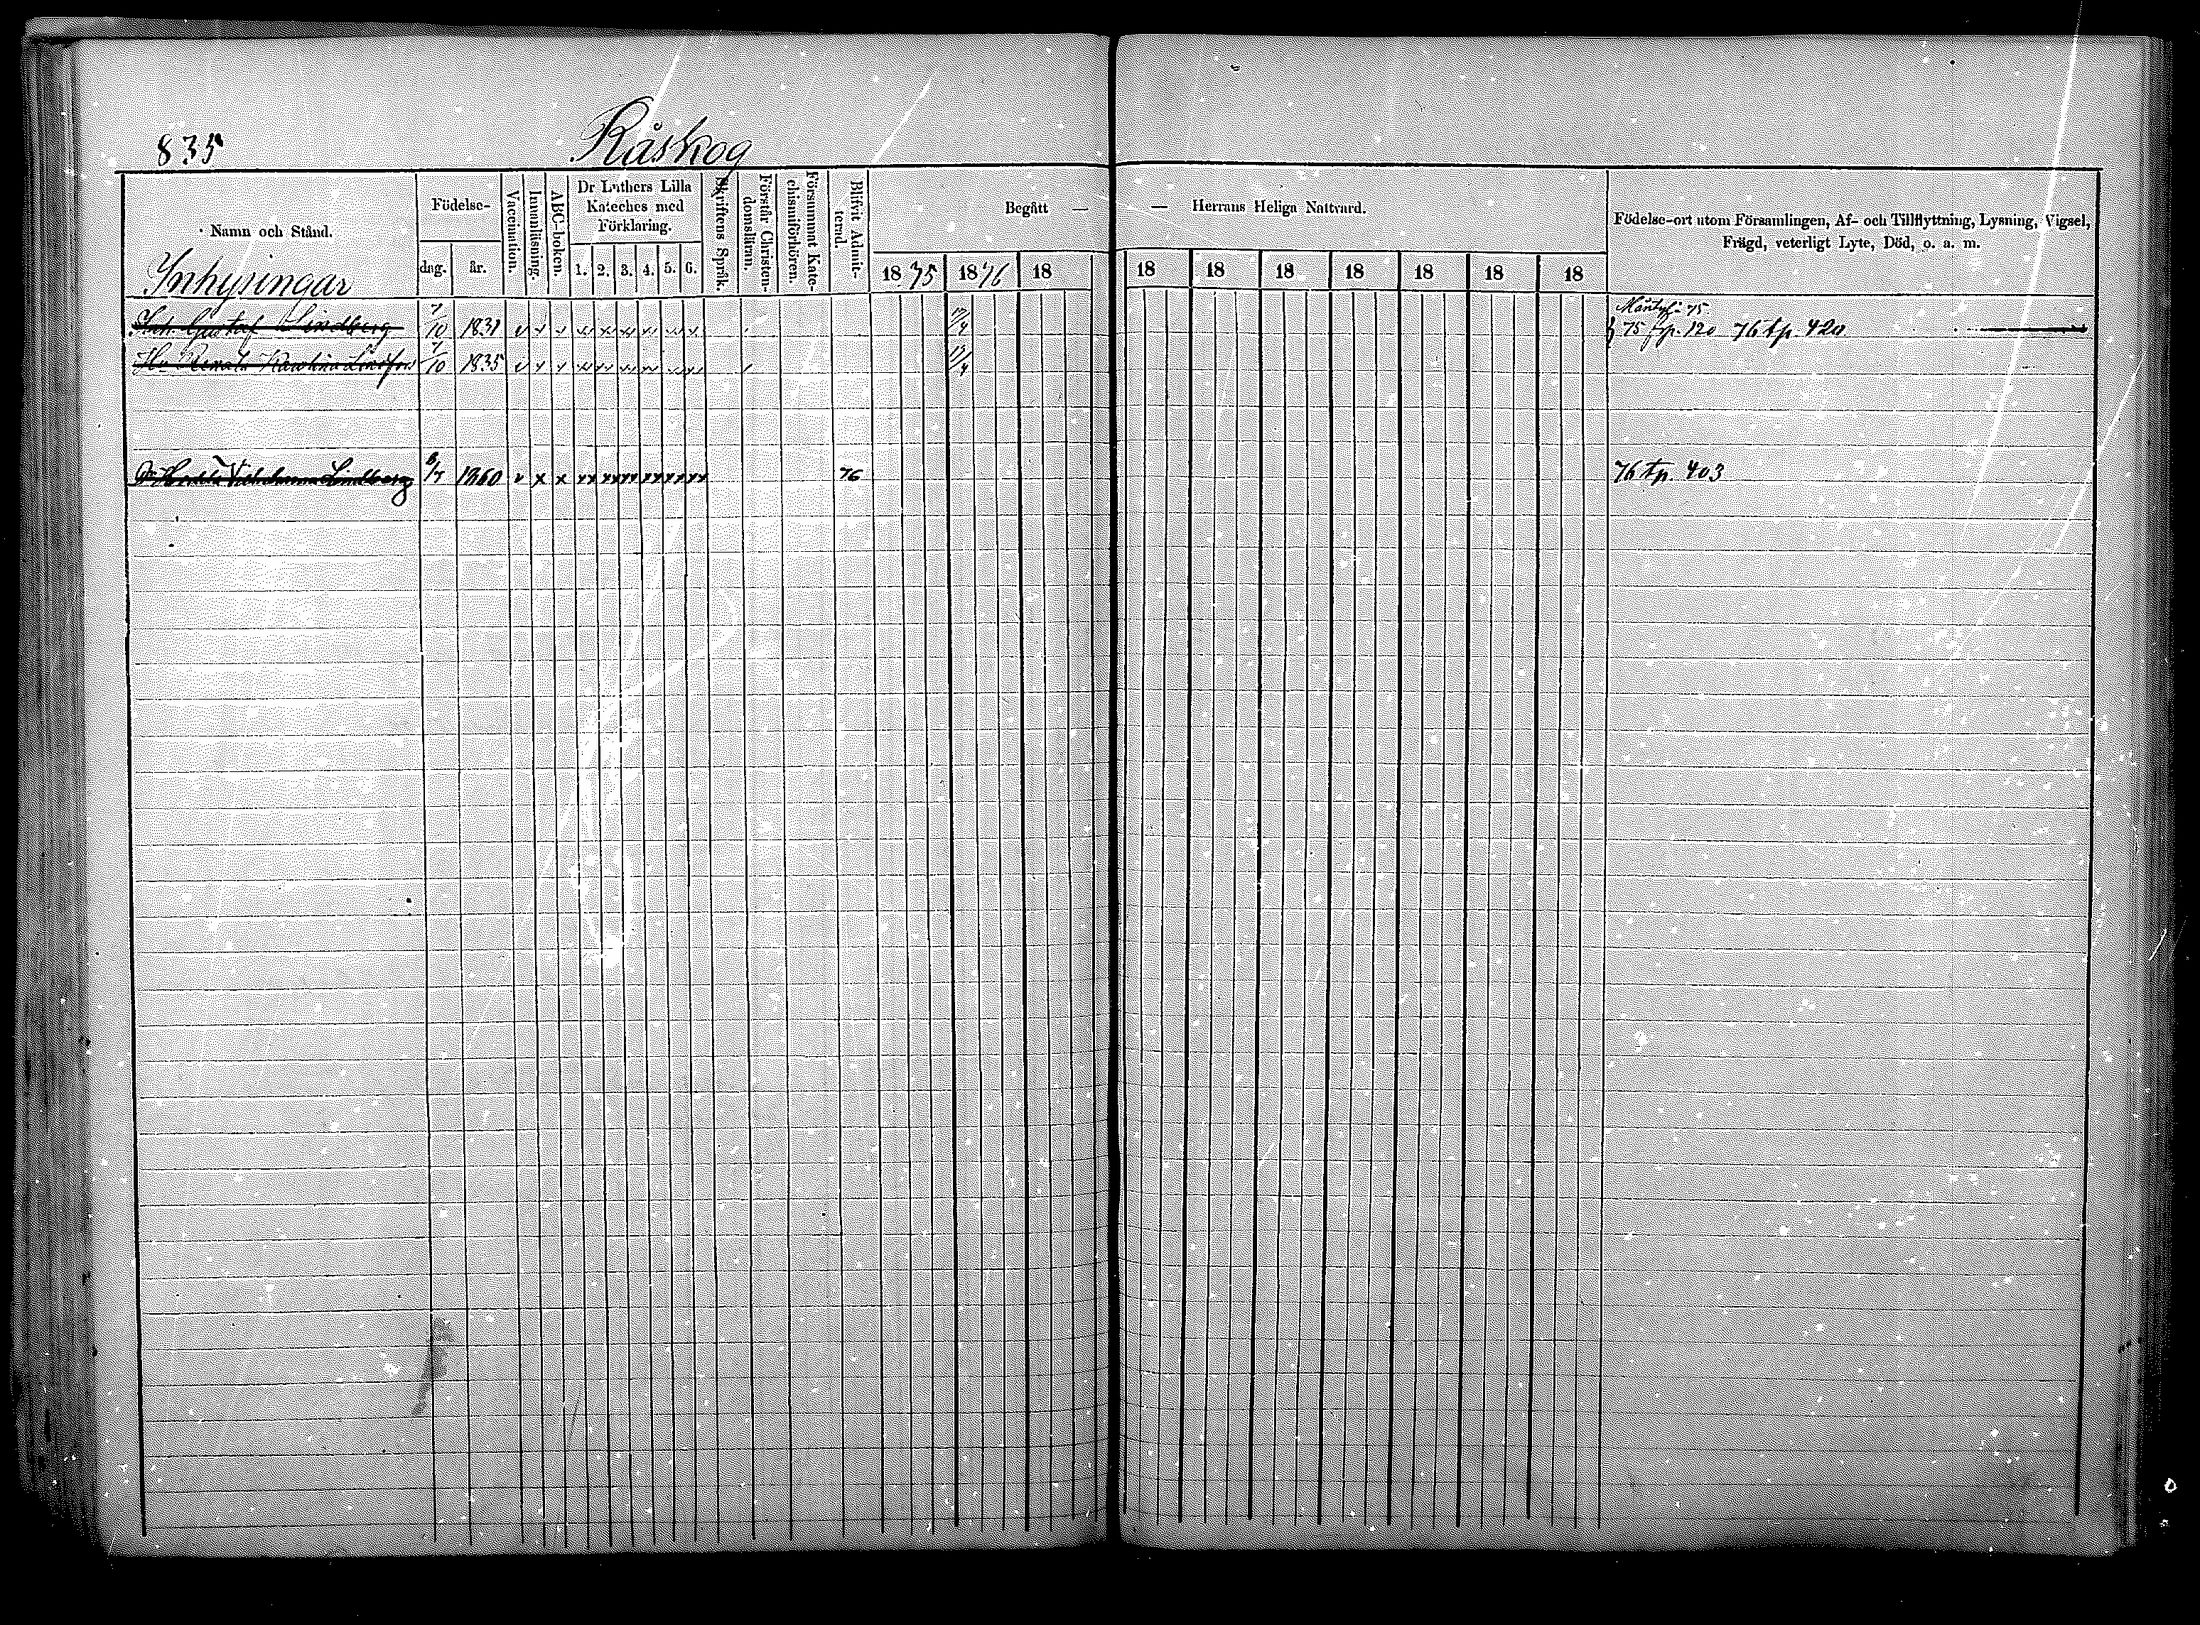 835
Råskog
Namn och Stånd.
Inhysingar
Födelse-
dag.
år.
Vaccination.
Innanläsning.
ABC-boken.
Dr Luthers Lilla
Kateches med
Förklaring.
1. 2. 3. 4. 5. 6.
Skriftens Språk.
Förstår Christen-
domsläran.
Försummat Kate-
chismiförhören.
Blifvit Admit-
terad.
Begått —
— Herrans Heliga Nattvard.
1875 1876 18 18 18 18 18 18 18 18
Födelse-ort utom Församlingen, Af- och Tillflyttning, Lysning, Vigsel,
Frägd, veterligt Lyte, Död, o. a. m.
Gustaf Lindberg 7/10 1831 v x x 17/4
75 fp. 120 76 tp. 420
Renata Karolina 7/10 1835 v x x 17/4
Vilhelmina Lindberg 3/7 1860 v x x 76 76 tp. 403